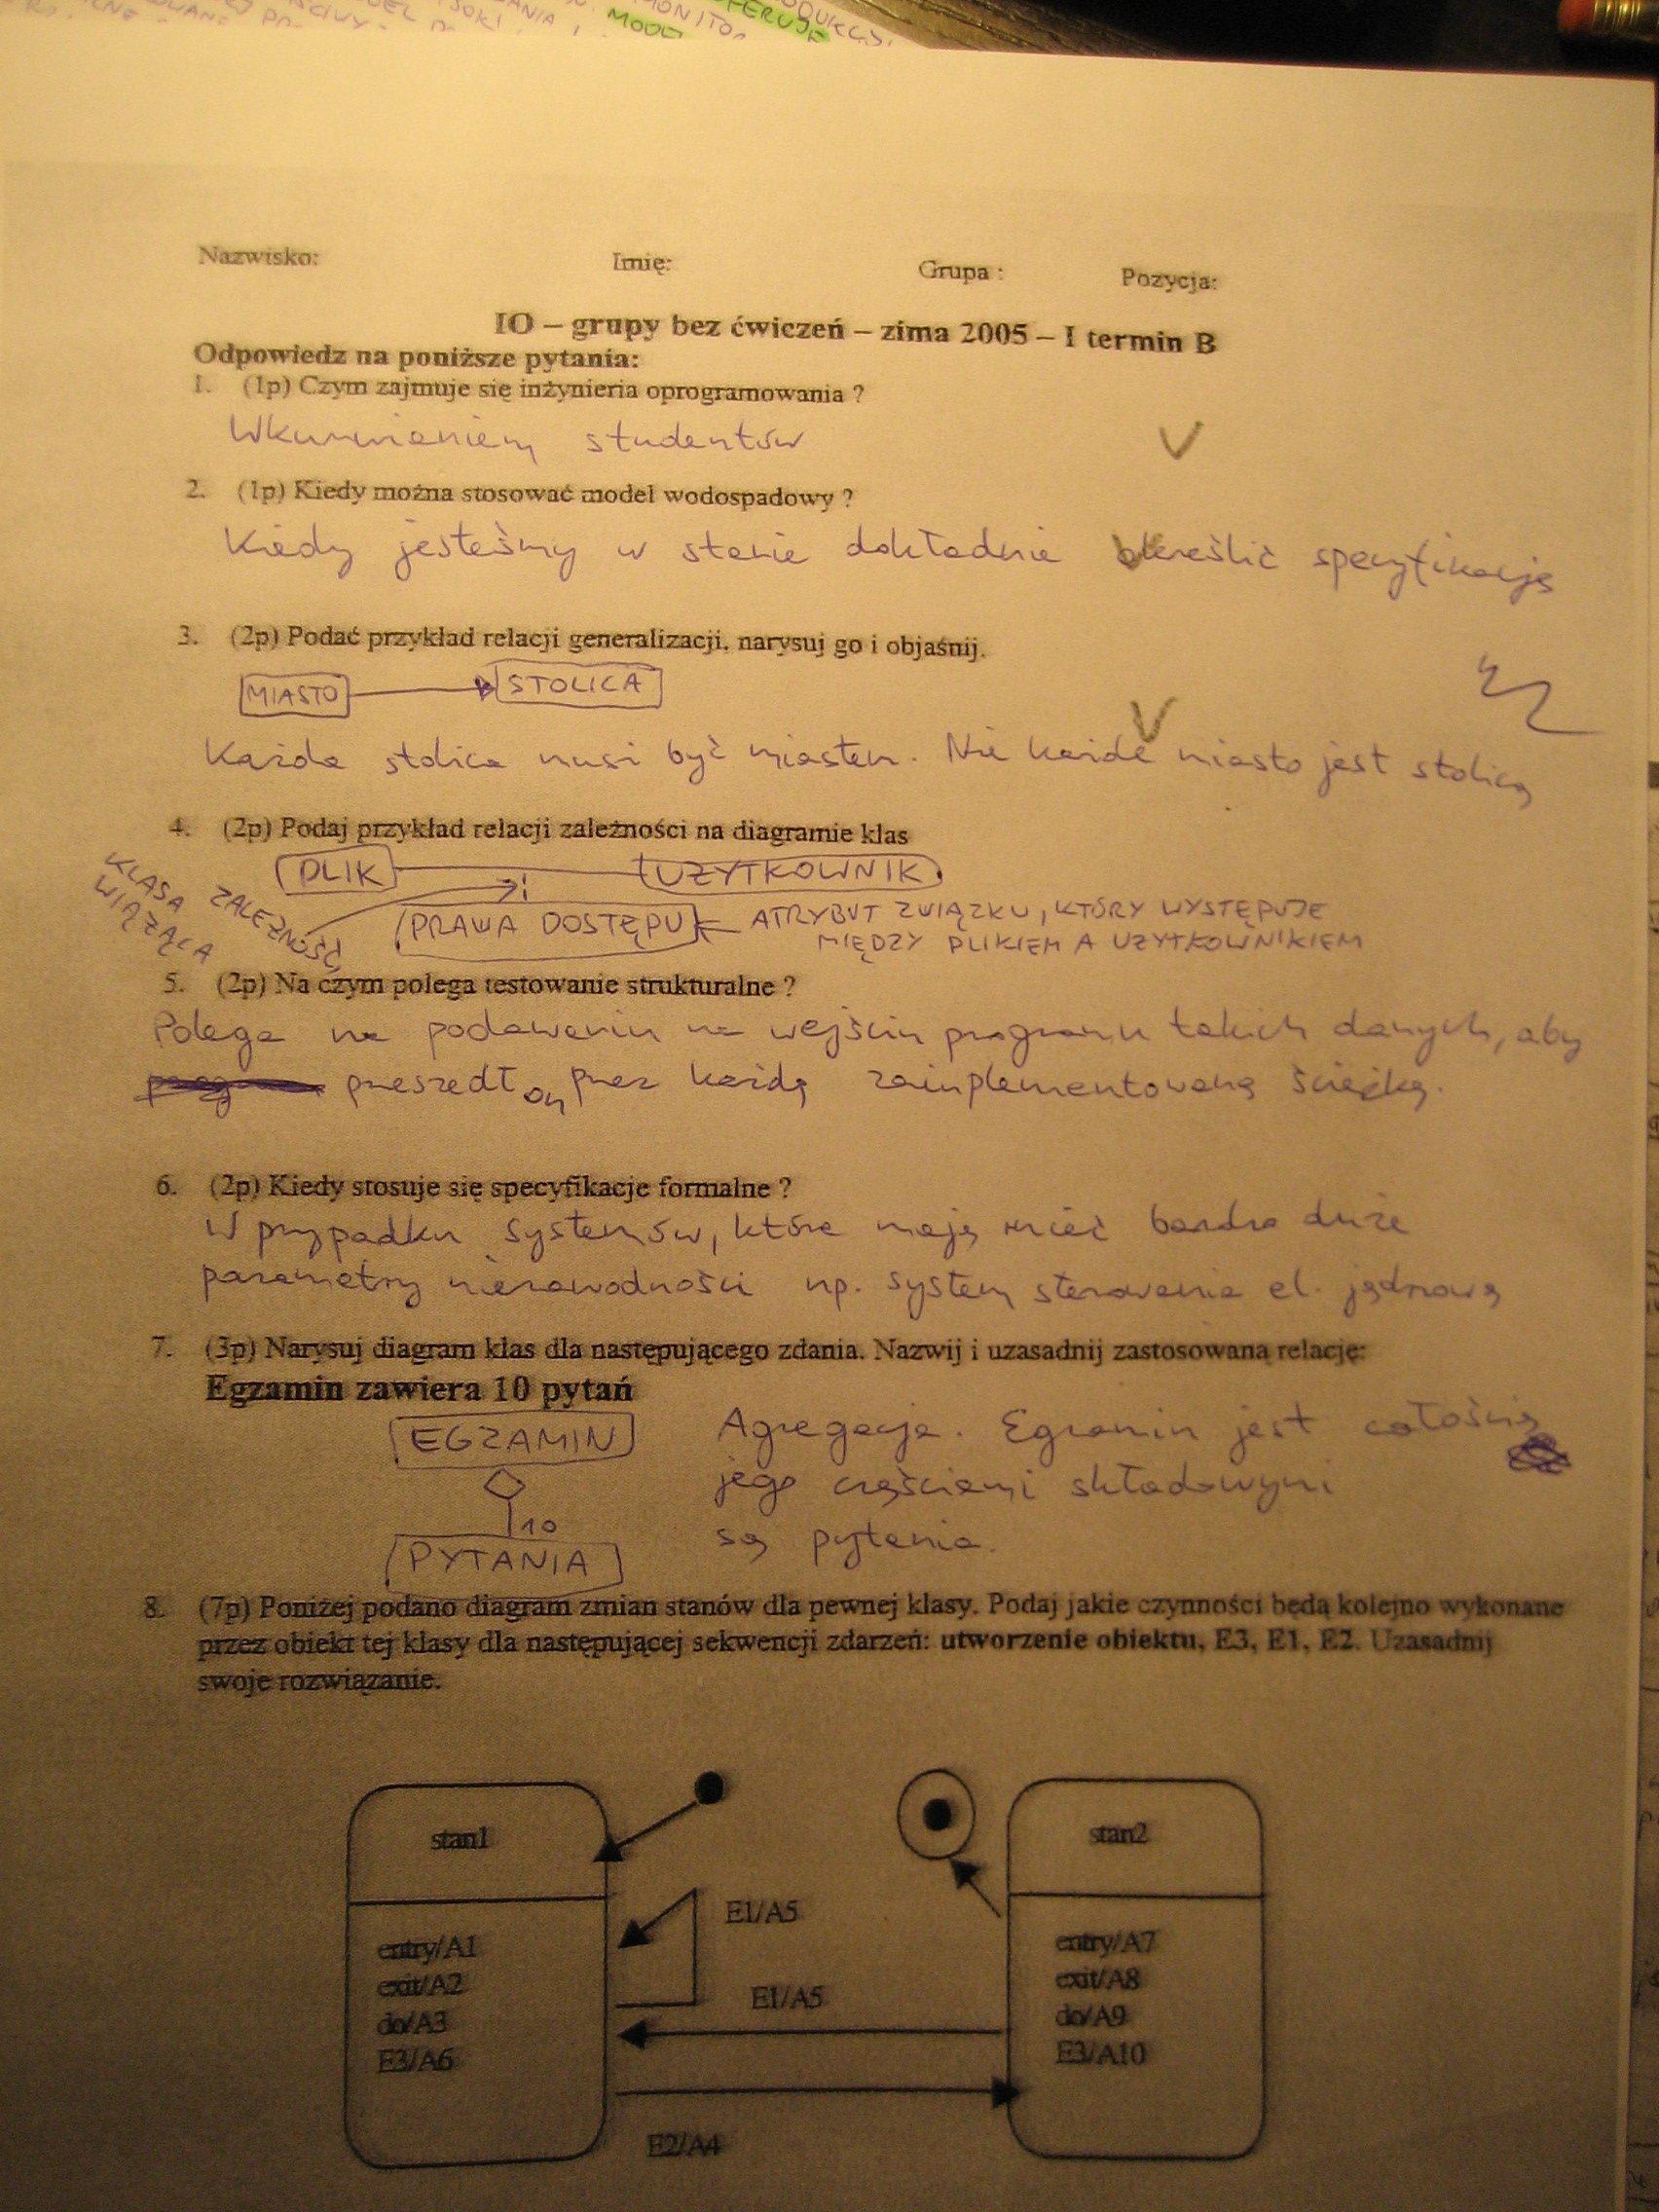 MONITO
MODE
Nazwisko:
Imię:
Grupa :
Pozycja:
IO – grupy bez ćwiczeń – zima 2005 – I termin B
Odpowiedz na poniższe pytania:
1. (1p) Czym zajmuje się inżynieria oprogramowania ?
Wkurwieniem studentów
2. (1p) Kiedy można stosować model wodospadowy ?
Kiedy jesteśmy w stanie dokładnie określić specyfikację
3. (2p) Podać przykład relacji generalizacji, narysuj go i objaśnij.
MIASTO STOLICA
Każda stolica musi być miastem. Nie każde miasto jest stolicą
4. (2p) Podaj przykład relacji zależności na diagramie klas
PLIK UŻYTKOWNIK
KLASA WIĄŻĄCA
ZALEŻNOŚĆ
PRAWA DOSTĘPU
ATRYBUT ZWIĄZKU, KTÓRY WYSTĘPUJE
MIĘDZY PLIKIEM A UŻYTKOWNIKIEM
5. (2p) Na czym polega testowanie strukturalne ?
Polega na podawaniu na wejściu programu takich danych, aby
przeszedł on przez każdą zaimplementowaną ścieżkę.
6. (2p) Kiedy stosuje się specyfikacje formalne ?
W przypadku systemów, które mają mieć bardzo duże
parametry niezawodności np. system sterowania el. jądrową
7. (3p) Narysuj diagram klas dla następującego zdania. Nazwij i uzasadnij zastosowaną relację:
Egzamin zawiera 10 pytań
EGZAMIN
10
PYTANIA
Agregacja. Egzamin jest całością
jego częściami składowymi
są pytania.
8. (7p) Poniżej podano diagram zmian stanów dla pewnej klasy. Podaj jakie czynności będą kolejno wykonane
przez obiekt tej klasy dla następującej sekwencji zdarzeń: utworzenie obiektu, E3, E1, E2. Uzasadnij
swoje rozwiązanie.
stan1
entry/A1
exit/A2
do/A3
E3/A6
E1/A5
E1/A5
E2/A4
stan2
entry/A7
exit/A8
do/A9
E3/A10